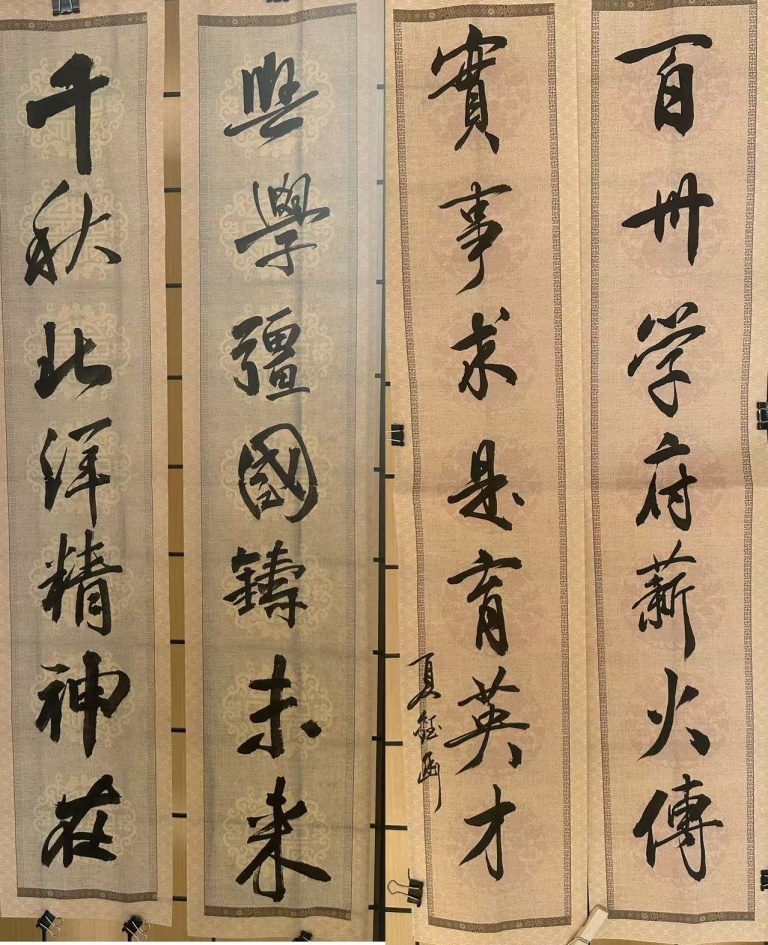 百卅学府薪火傳
實事求是育英才
夏
興學彊國鑄未来
千秋北洋精神在